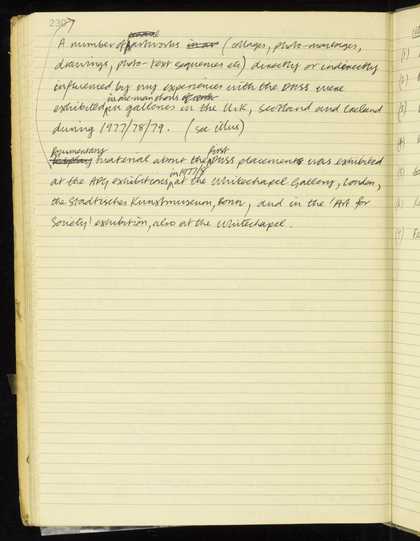 230
A number of artworks (collages, photo-montages,
drawings, photo-text sequences etc) directly or indirectly
influenced by my experiences with the DHSS were
exhibited in one-man shows in galleries in the U.K, Scotland and Iceland
during 1977/78/79. (see illus)
Documentary material about the first DHSS placement was exhibited
at the APG exhibitions in 1977/8 at the Whitechapel Gallery, London,
the Stadtisches Kunstmuseum, Bonn, and in the 'Art for
Society' exhibition, also at the Whitechapel.
(1)
(7)